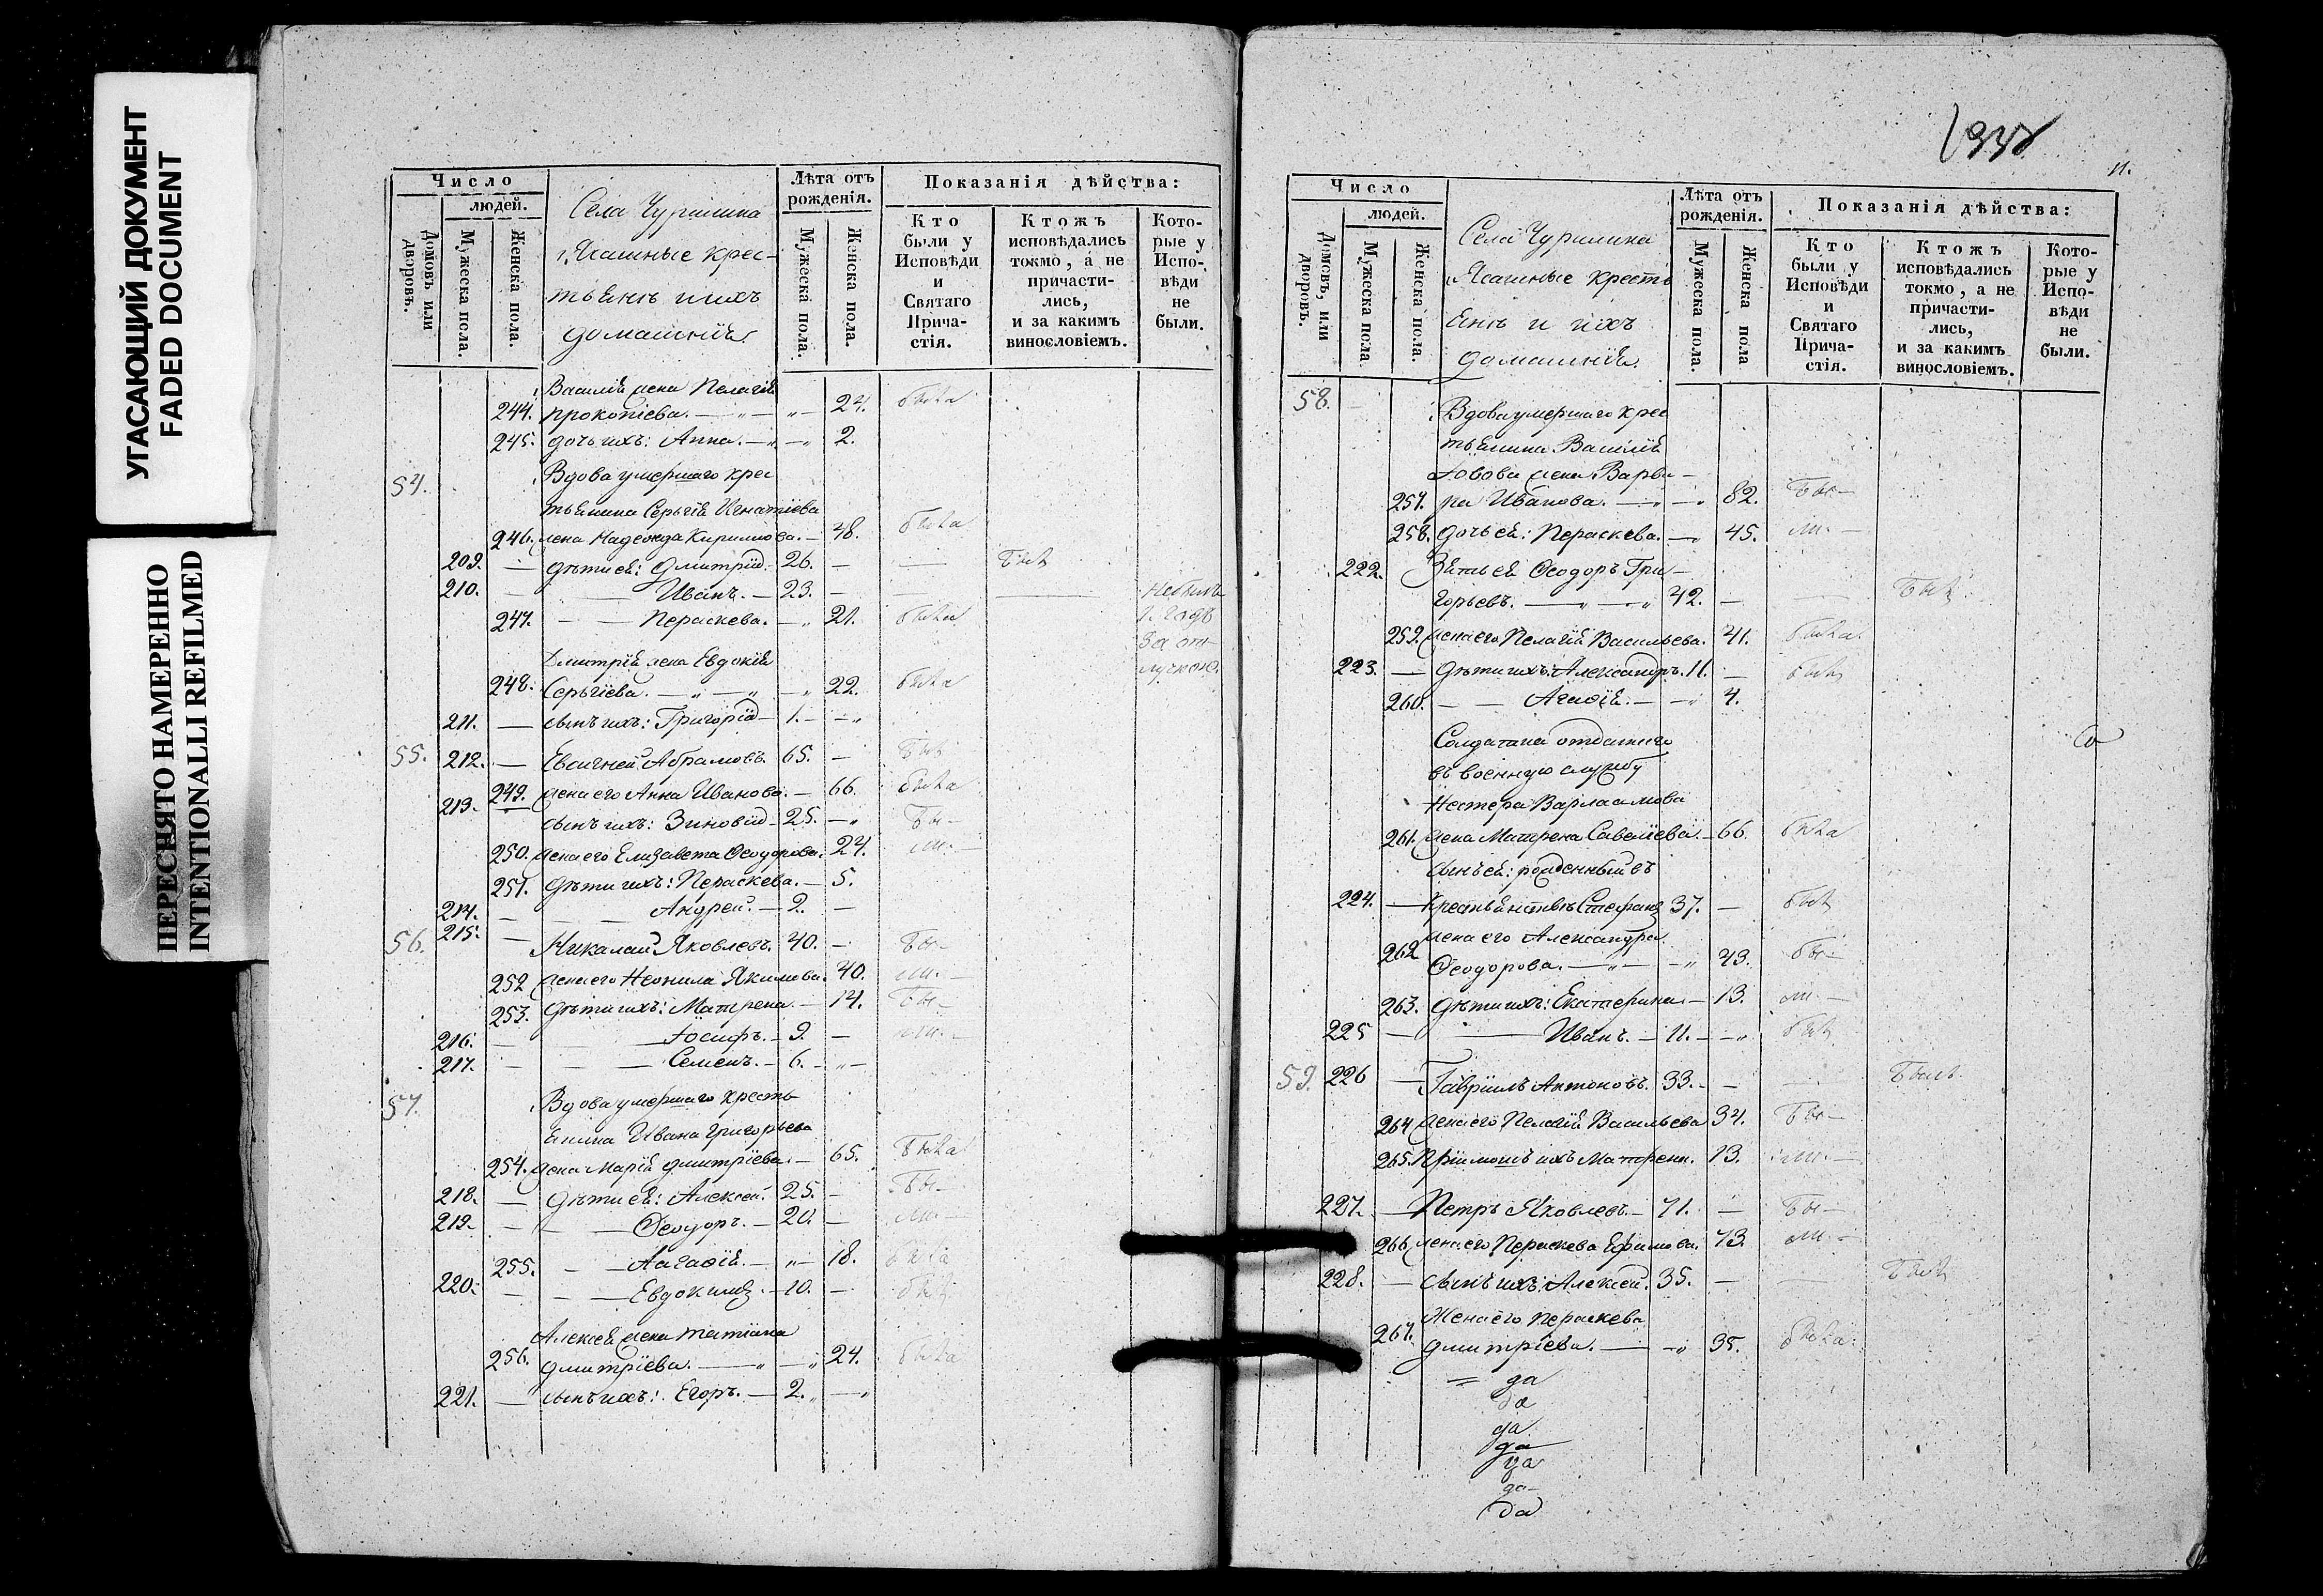 УГАСАЮЩИЙ ДОКУМЕНТ
FADED DOCUMENT
ПЕРЕСНЯТО НАМЕРЕННО
INTENTIONALLI REFILMED
Число
людей.
Домовъ или дворовъ.
Мужеска пола.
Женска пола.
Села Чурилина
Ясашные крес-
тьянѣ и ихъ
домашнія
Лѣта отъ рожденія.
Мужеска пола.
Женска пола.
Показанія дѣйства:
Кто были у Исповѣди и Святаго Прича-стія.
Ктожъ исповѣдались токмо, а не причасти-лись, и за какимъ винословіемъ.
Кото-рые у Испо-вѣди не были.
Василія жена Пелагія
244. Прокопіева. — „ — „ — 24. была
245. дочь ихъ: Анна. — „ — „ 2.
54. Вдова умершаго крес
тьянина Сергія Игнатіева
246. жена Надежда Кирилова. — 48. была
209. — дѣти ея: Дмитрій. 26. — — былъ
210. — — Иванъ. — 23. — — Небылъ
247. — — Параскева. — „ 21. была 1. годъ
За от
лучкою.
Дмитрія жена Евдокія
248. Сергіева. — „ — „ — „ 22. была
211. — сынъ ихъ: Григорій — 1. — „
55. 212. — Евсигней Абрамовъ. 65. — былъ
249. жена его Анна Иванова. — 66. была
213. сынъ ихъ: Зиновій — 25. — „ Бы—
250. жена его Елизавета Ѳеодорова. 24. ли. —
251. дѣти ихъ: Параскева. — 5.
214. — — Андрей. — 2. —
56. 215. — Николай Яковлевъ. 40. — Бы—
252 жена его Неонила Якимова. 40. ли. —
253. дѣти ихъ: Матрена. — 14. Бы—
216. — — Іосифъ. — 9. — ли. —
217. — — Семенъ. — 6. — „ —
57. Вдова умершаго кресть
янина Ивана Григорьева
254. жена Марія Дмитріева. — 65. Была
218. — дѣти ея: Алексей. 25. — Бы—
219. — — Ѳеодоръ. — 20. — ли —
255. — — Агафія. — „ — 18. была
220. — — Евдокимъ. — 10. — былъ
Алексея жена Татіана
256. Дмитріева. — „ — „ 24. была
221. — сынъ ихъ: Егоръ. — 2. „ — „
11.
Число
людей.
Домовъ, или дворовъ.
Мужеска пола
Женска пола.
Села Чурилина
Ясашные кресть
янѣ и ихъ
домашнія.
Лѣта отъ рожденія.
Мужеска пола.
Женска пола
Показанія дѣйства:
Кто были у Исповѣди и Святаго Прича-стія.
Ктожъ исповѣдались токмо, а не причасти-лись, и за какимъ винословіемъ.
Кото-рые у Испо-вѣди не были.
58. — Вдова умершаго крес
тьянина Василія
Іовова жена Варва —
257. ра Иванова. — „ — „ 82. Бы—
258. дочь ея: Параскева. — „ 45. ли.
222. Зять ея Ѳеодоръ Гри —
горьевъ. — „ — „ 42. — — былъ
259. жена его Пелагія Васильева. 41. была
223. — дѣти ихъ: Александръ. 11. — былъ
260. — — Агафія. — — „ 4.
Солдатка отданнаго
въ военную службу
Нестера Варлаамова
261. жена Матрена Савеліева. — 66. была
сынъ ея: рожденный въ
224. — крестьянствѣ Стефанъ 37. — былъ
жена его Александра
262 Ѳеодорова. — „ — — „ 43. бы—
263. дѣти ихъ: Екатерина. — 13. ли. —
225 — — Иванъ. — 11. — „ былъ
59. 226 — Гавріилъ Антоновъ. 33. — — — былъ
264 жена его Пелагія Васильева 34. Бы—
265. Пріимышъ ихъ Матрена. 13. ли. —
227. — Петръ Яковлевъ. — 71. — Бы—
266 жена его Параскева Ефимова. 73. ли —
228. — сынъ ихъ: Алексей. 35. — — былъ
Жена его Параскева
267. Дмитріева. — — „ 35. была
= да
да
да
да
да
да
да